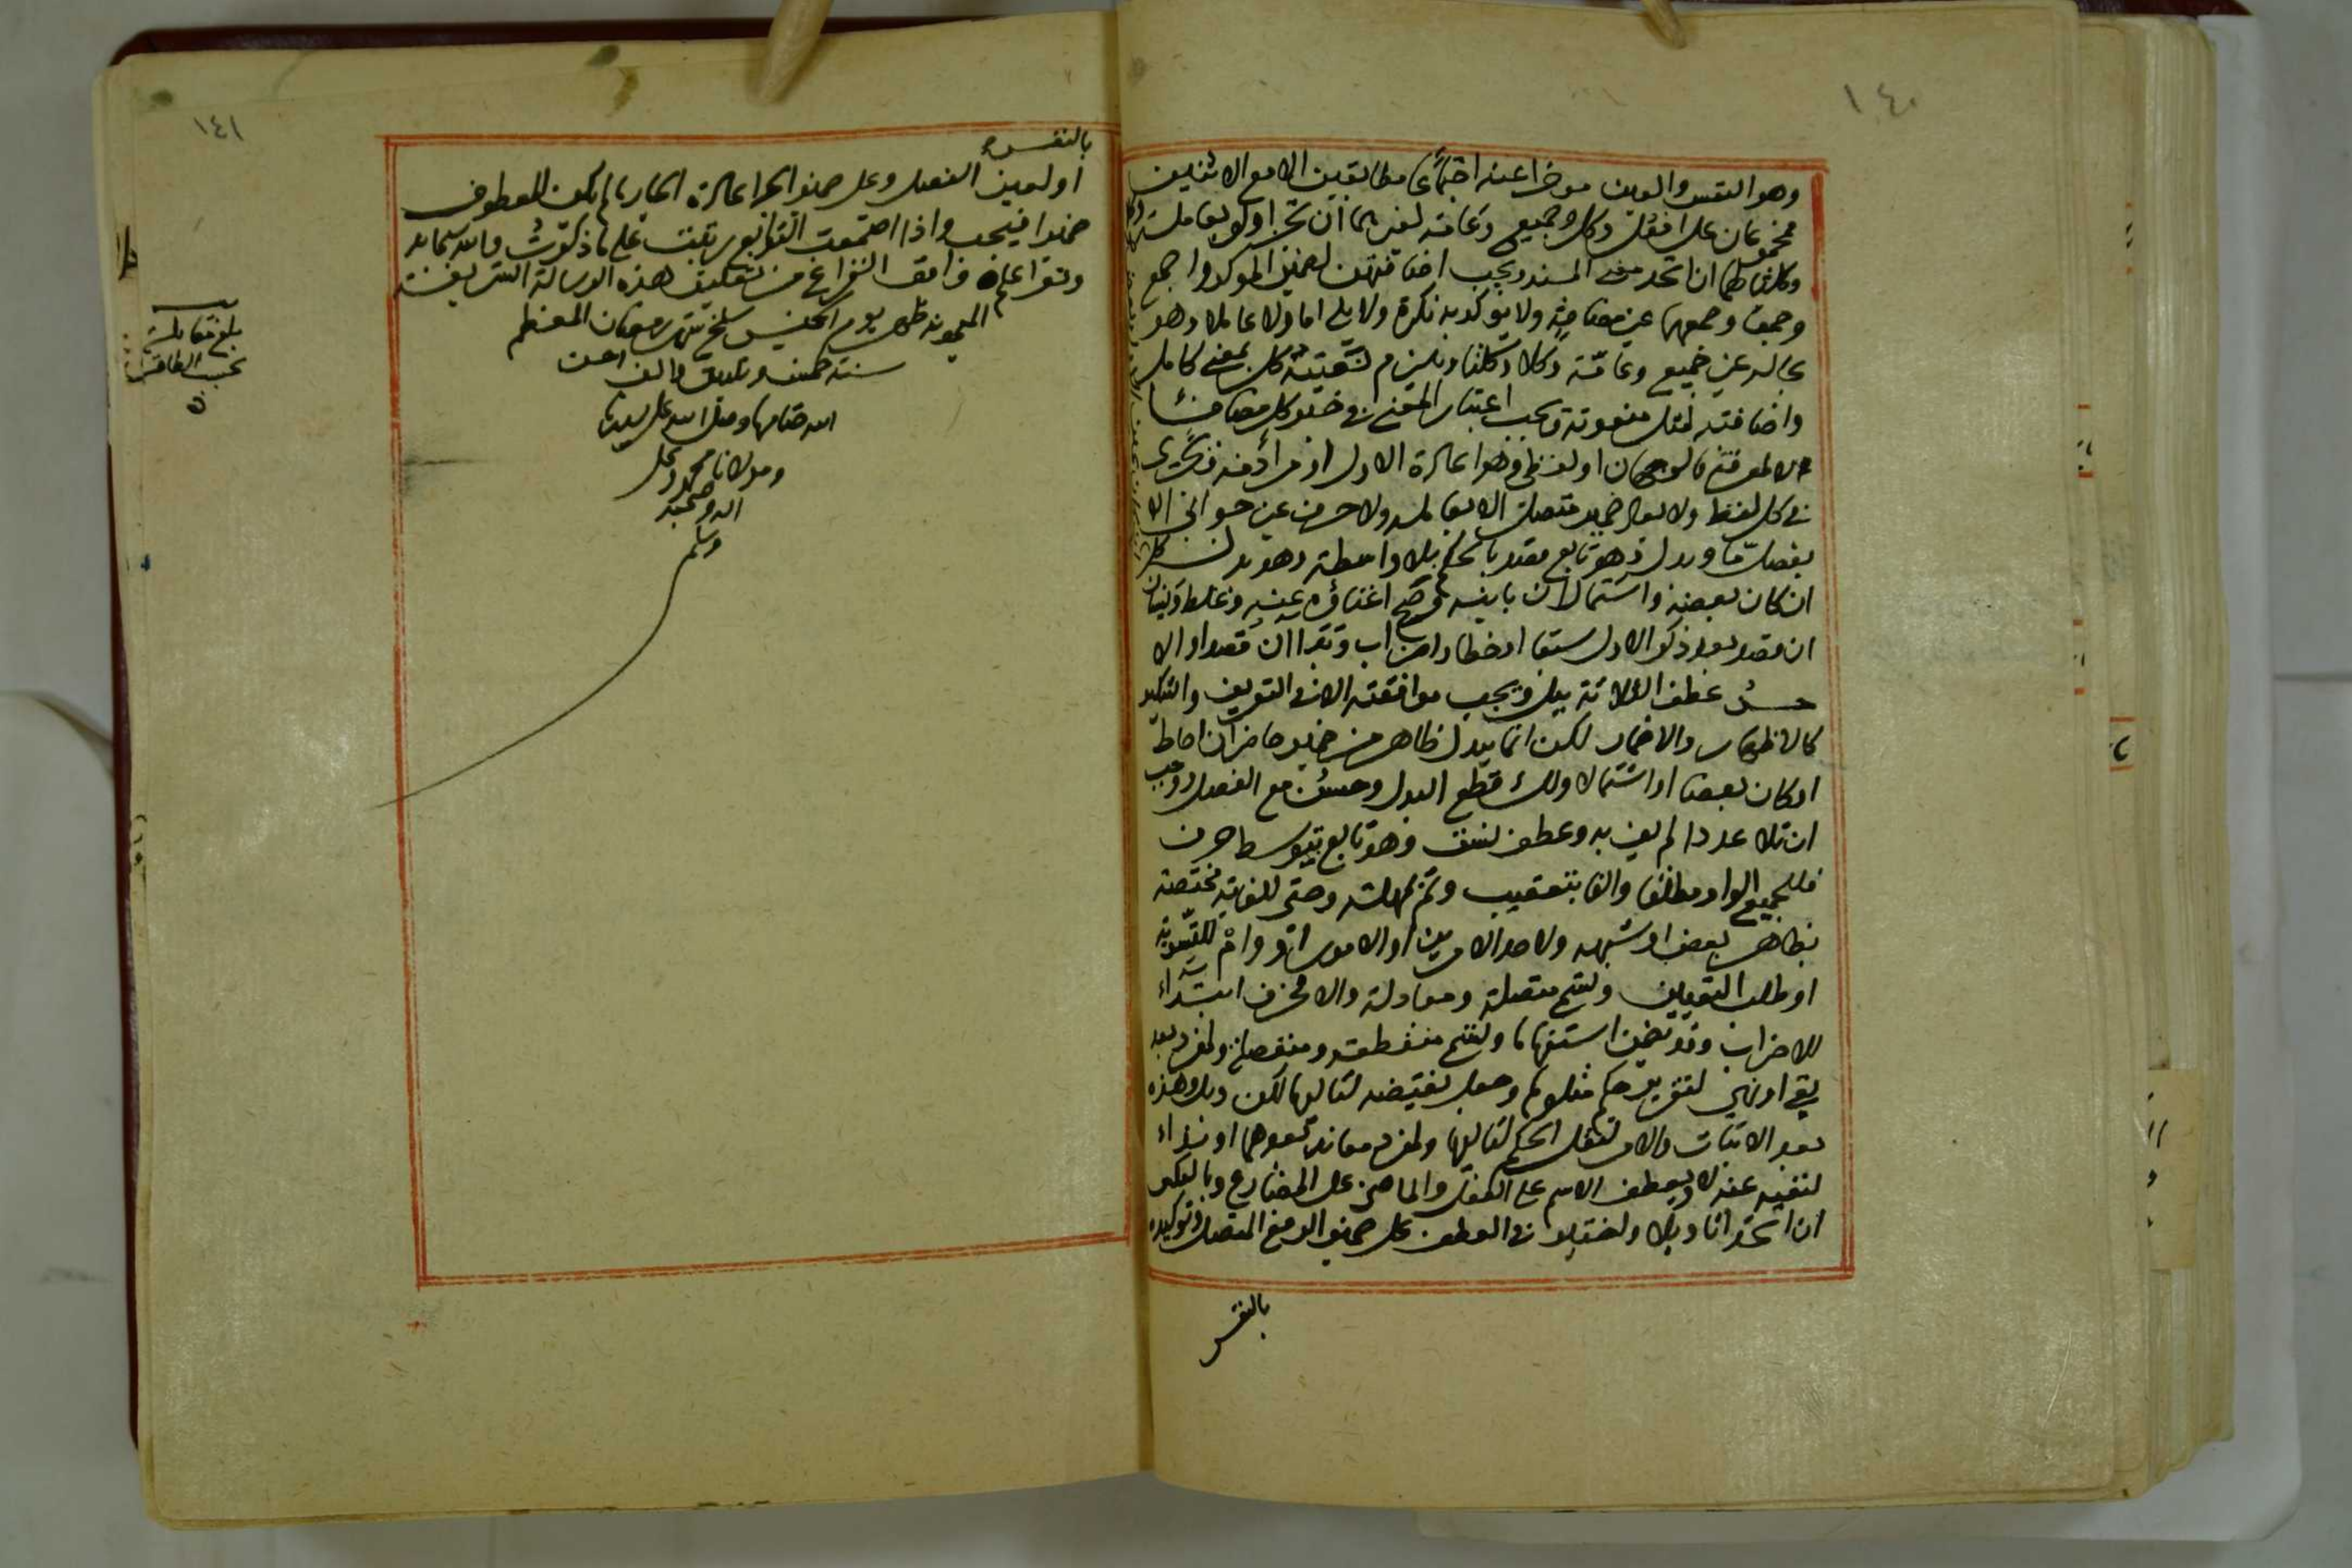 ١٤٠
وهو النفس والعين موخرا عنه اجتماعا مطابقين الا مع الاثنين
فمجموعان على افعل وكل وجميع وعامة لغيرهما ان تجزأ ولو بعامله
وكلتا لهما ان اتحد معنى المسند ويجب اضافتهن لضمير الموكد واجمع
وجمعا وجمعهما غير مضافة ولا يوكد به نكرة ولا يلي اما ولا عاملا وهو
بحاله غير جميع وعامة وكلا وكلتا ويلزم تبعية كل بمعنى كامل
واضافته لمثل منعوته ويجب اعتبار المعنى في خبر كل مضافا
لا لمعرفة فالوجهان او لفظي وهو اعادة الاول او مرادفه
في كل لفظ ولا يعاد ضمير متصل الا بعامله ولا حرف غير جوابي الا
بفصل ما وبدل وهو تابع مقصد بالحكم بلا واسطة وهو بدل كل
ان كان بعضه واشتمال ان باينه وصح اغناؤه عنه وغلط ونسيان
ان قصد بعد ذكر الاول سبقا او خطا واضراب وبدا ان قصد او الا
حسن عطف الثلاثة ببل ويجب موافقته لا في التعريف والتنكير
كالاظهار والاضمار لكن انما يبدل ظاهر من ضمير حاضر ان احاط
او كان بعضا او اشتمالا ولك قطع البدل وحسن مع الفصل ووجب
ان تلا عددا لم يف به وعطف نسق وهو تابع بتوسط حرف
فللجميع الواو مطلقا والفا بتعقيب وثم بمهلة وحتى للغاية مختصة
بظاهر بعض او شبهه ولاحد الامرين او الامور او وام للتسوية
او طلب التعيين وتسم متصلة ومعادلة والا فحرف ابتداء
للاضراب وقد تضمن استفهاما وتسم منقطعة ومنفصلة ولفرد بعد
نفي او نهي لتقرير حكم متلوها وجعل نقيضه لتاليها لكن وبل وهذه
بعد الاثبات والامر لنقل الحكم لتاليها ولفرد معاند بعدهما او نداء
لنفيه عنه لا ويعطف الاسم على الفعل والماضي على المضارع وبالعكس
ان اتحدا تاويلا ولا في العطف على ضمير الرفع المتصل وتوكيده
بالنفس
١٤١
بالنفس
او لعين الفصل وعلى ضمير الجر اعادة الجار ما لم يكن المعطوف
ضميرا فيجب واذا اجتمعت التوابع رتبت على ما ذكرت والله سبحانه
وتعالى اعلم وافق الفراغ من تعليق هذه الرسالة الشريفة
الميمونة ظهر يوم الخميس سلخ شهر رمضان المعظم
سنة خمس وثلاثين والف احسن
الله ختامها وصلى الله على سيدنا
ومولانا محمد وعلى
اله وصحبه
وسلم
بلغ مقابلة
بحسب الطاقة